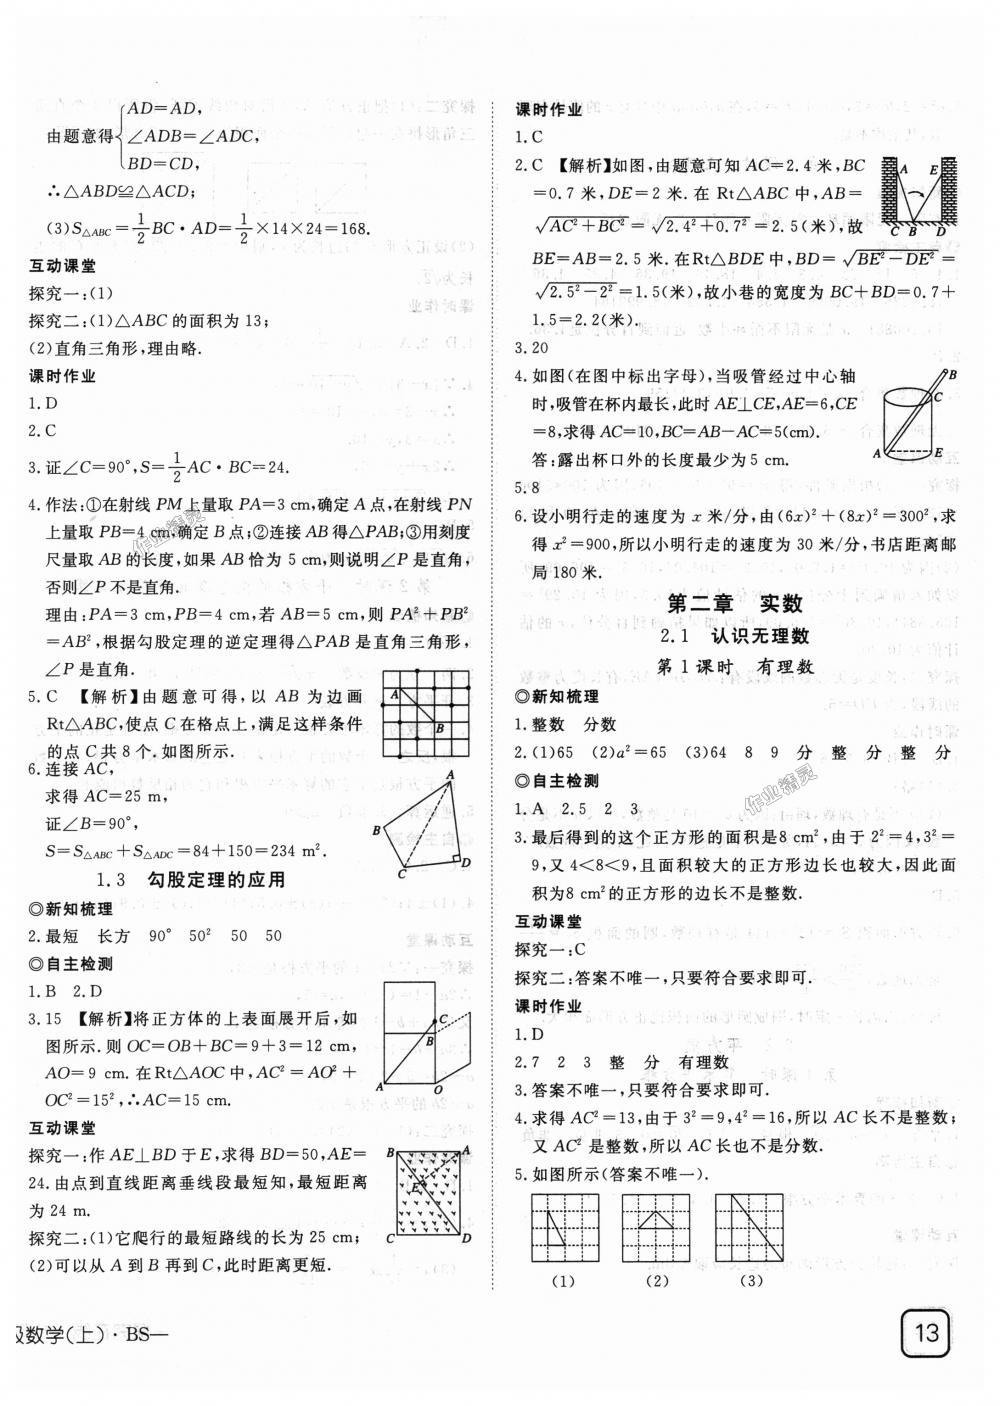 AD=AD,
由题意得{∠ADB=∠ADC,
BD=CD,
∴△ABD≌△ACD;
(3)S△ABC=1/2BC·AD=1/2×14×24=168.
互动课堂
探究一:(1)
探究二:(1)△ABC的面积为13;
(2)直角三角形,理由略.
课时作业
1.D
2.C
3.证∠C=90°,S=1/2AC·BC=24.
4.作法:①在射线PM上量取PA=3 cm,确定A点,在射线PN
上量取PB=4 cm,确定B点;②连接AB得△PAB;③用刻度
尺量取AB的长度,如果AB恰为5 cm,则说明∠P是直角,
否则∠P不是直角.
理由:PA=3 cm,PB=4 cm,若AB=5 cm,则PA²+PB²
=AB²,根据勾股定理的逆定理得△PAB是直角三角形,
∠P是直角.
5.C 【解析】由题意可得,以AB为边画
Rt△ABC,使点C在格点上,满足这样条件
的点C共8个.如图所示.
A
B
6.连接AC,
求得AC=25 m,
证∠B=90°,
S=S△ABC+S△ADC=84+150=234 m².
A
B
C
D
1.3 勾股定理的应用
◎新知梳理
2.最短 长方 90° 50² 50 50
◎自主检测
1.B 2.D
3.15 【解析】将正方体的上表面展开后,如
图所示.则OC=OB+BC=9+3=12,
AO=9.在Rt△AOC中,AC²=AO²+
OC²=15²,∴AC=15.
C
B
A
O
互动课堂
探究一:作AE⊥BD于E,求得BD=50,AE=
24.由点到直线距离垂线段最短知,最短距离
为24 m.
B
A
E
C
D
探究二:(1)它爬行的最短路线的长为25 cm;
(2)可以从A到B再到C,此时距离更短.
级数学(上)·BS—
课时作业
1.C
2.C 【解析】如图,由题意可知AC=2.4米,BC
=0.7米,DE=2米.在Rt△ABC中,AB=
√(AC²+BC²)=√(2.4²+0.7²)=2.5(米),故
BE=AB=2.5米.在Rt△BDE中,BD=√(BE²-DE²)=
√(2.5²-2²)=1.5(米),故小巷的宽度为BC+BD=0.7+
1.5=2.2(米).
A
E
C B D
3.20
4.如图(在图中标出字母),当吸管经过中心轴
时,吸管在杯内最长,此时AE⊥CE,AE=6,CE
=8,求得AC=10,BC=AB-AC=5(cm).
答:露出杯口外的长度最少为5 cm.
B
C
A
E
5.8
6.设小明行走的速度为x米/分,由(6x)²+(8x)²=300²,求
得x²=900,所以小明行走的速度为30米/分,书店距离邮
局180米.
第二章 实数
2.1 认识无理数
第1课时 有理数
◎新知梳理
1.整数 分数
2.(1)65 (2)a²=65 (3)64 8 9 分 整 分 整 分
◎自主检测
1.A 2.5 2 3
3.最后得到的这个正方形的面积是8 cm²,由于2²=4,3²=
9,又4<8<9,且面积较大的正方形边长也较大,因此面
积为8 cm²的正方形的边长不是整数.
互动课堂
探究一:C
探究二:答案不唯一,只要符合要求即可.
课时作业
1.D
2.7 2 3 整 分 有理数
3.答案不唯一,只要符合要求即可.
4.求得AC²=13,由于3²=9,4²=16,所以AC长不是整数;
又AC²是整数,所以AC长也不是分数.
5.如图所示(答案不唯一).
(1) (2) (3)
13
作业精灵
作业精灵